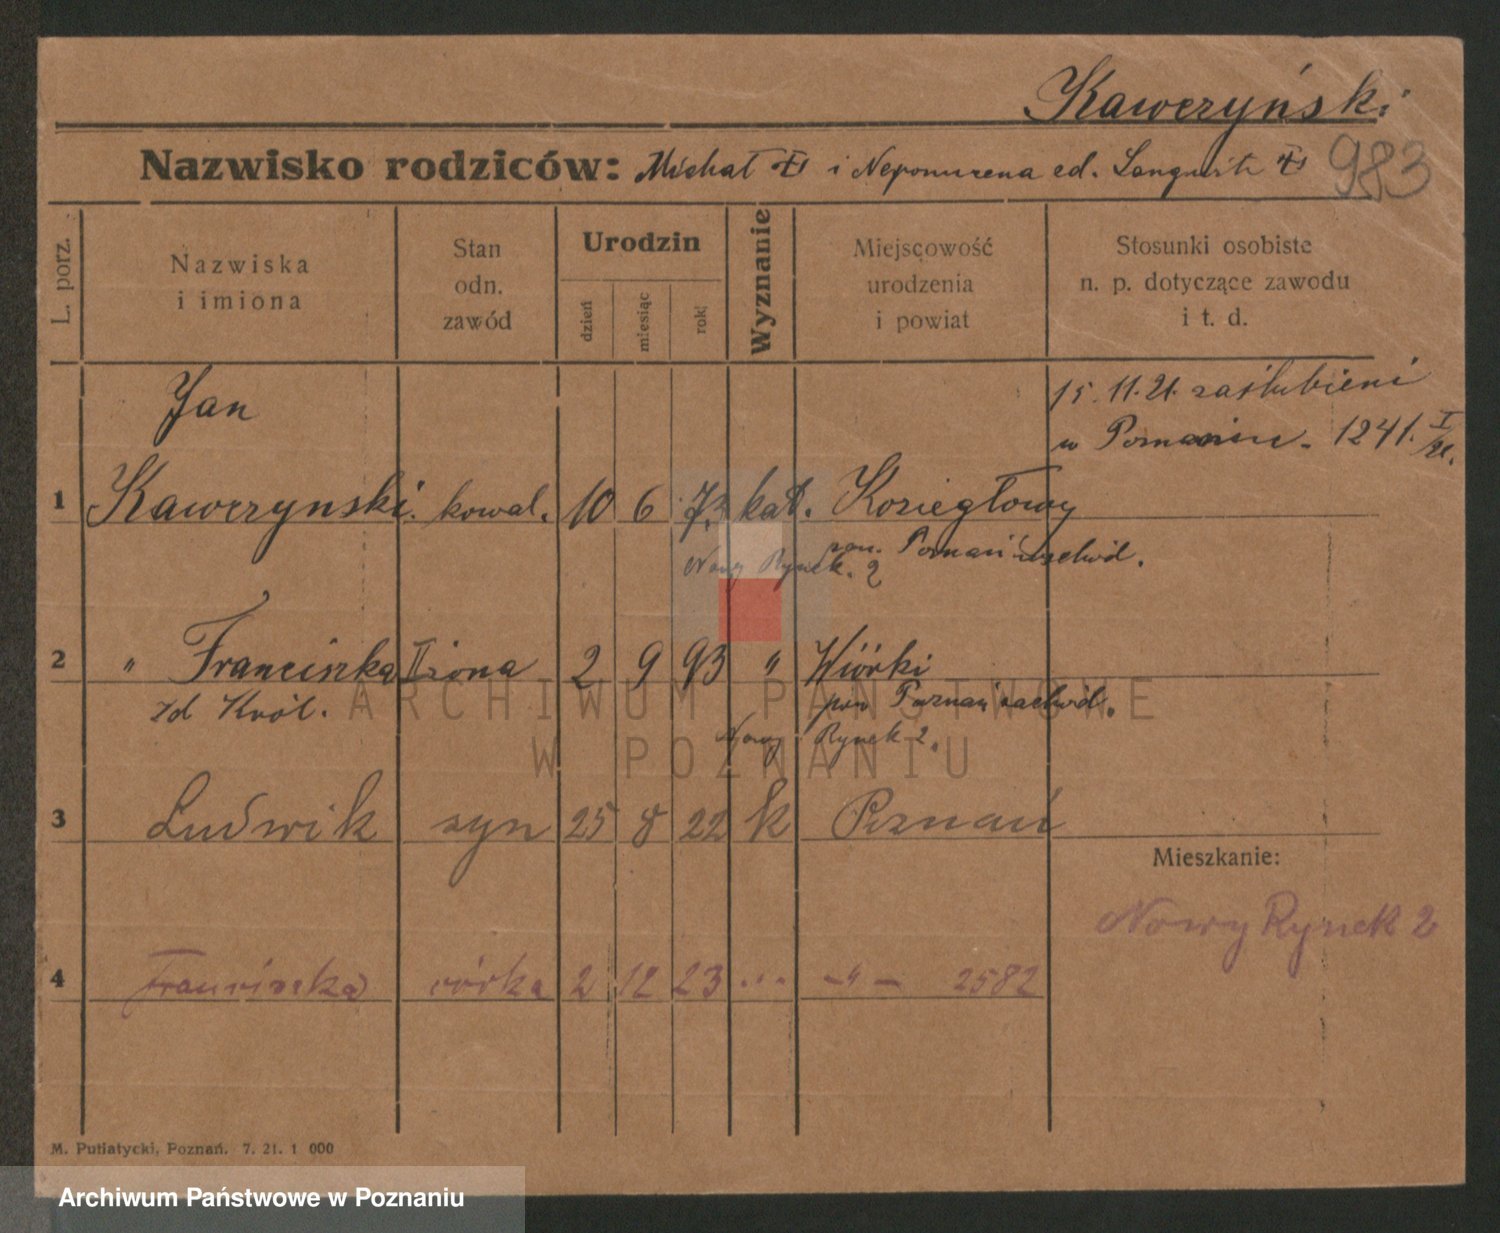 Kaweryński
Nazwisko rodziców: Michał i Nepomucena 983
L. porz.
Nazwiska
i imiona
Stan
odn.
zawód
Urodzin
dzień
miesiąc
rok
Wyznanie
Miejscowość
urodzenia
i powiat
Stosunki osobiste
n. p. dotyczące zawodu
i t. d.
15. 11. 21. zaślubieni
w Poznaniu - 1241. I/21.
Jan
1 Kawerynski. kowal. 10 6 73 kat. Koziegłowy
pow. Poznań wschód.
Nowy Rynek. 2
2 " Franciszka II żona 2 9 93 " Wiórki
zd Król. pow Poznań zachód.
Nowy Rynek 2.
3 Ludwik syn 25 8 22 k Poznań
Mieszkanie:
Nowy Rynek 2
4 Franciszka córka 2 12 23 ... -"- 2582
ARCHIWUM PAŃSTWOWE
W POZNANIU
M. Putiatycki, Poznań. 7. 21. 1 000
Archiwum Państwowe w Poznaniu